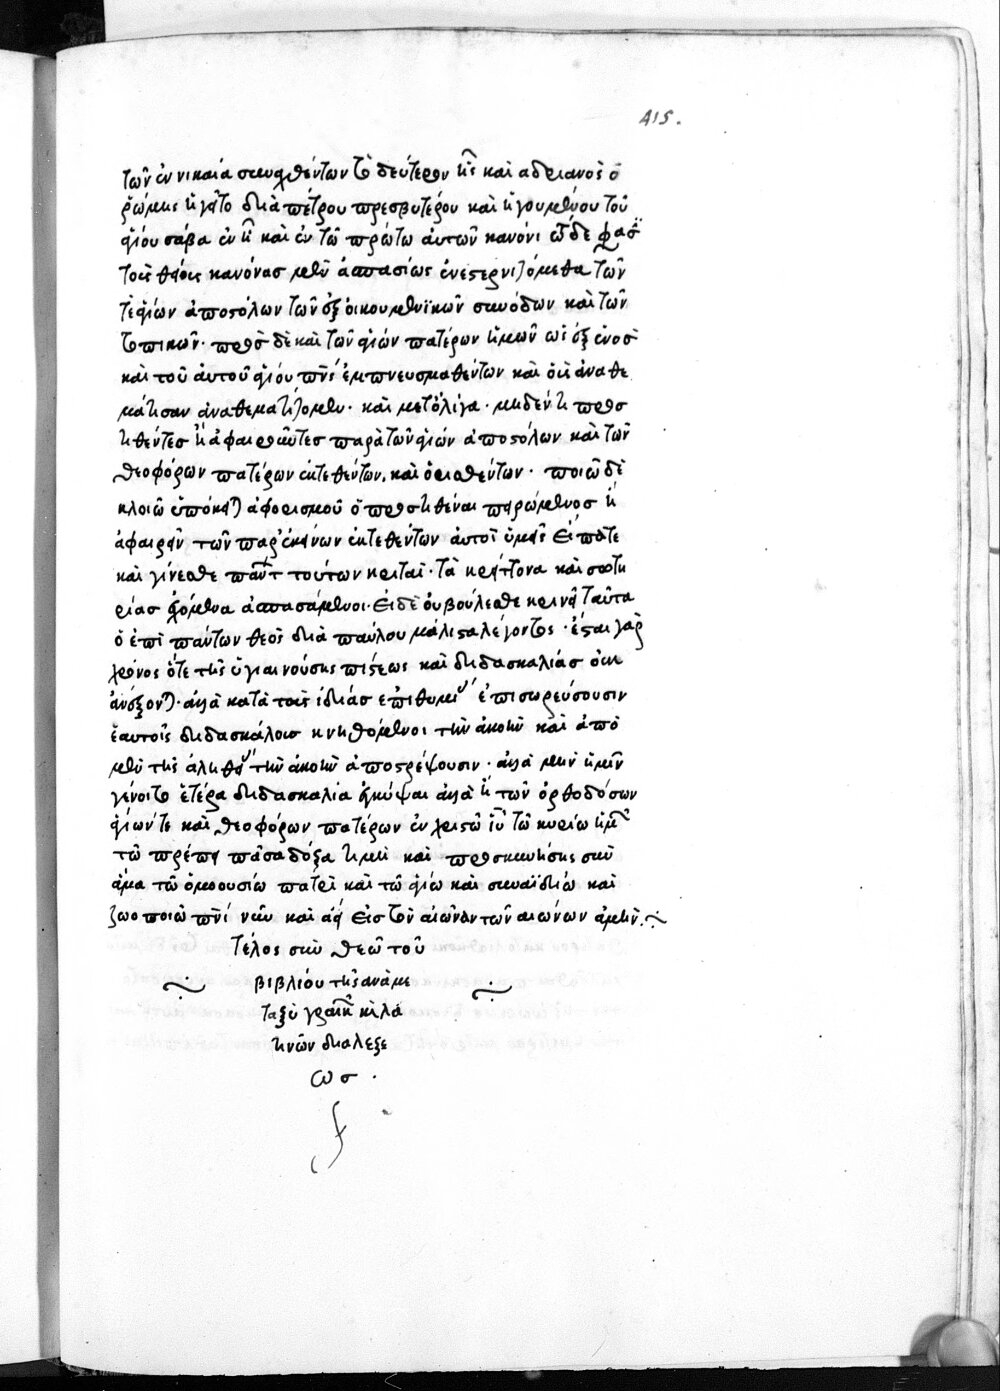 415.
τῶν ἐν νικαία συναχθέντων τὸ δεύτερον ἧς καὶ ἀδριανὸς ὁ
ῥώμης ἡγεῖτο διὰ πέτρου πρεσβυτέρου καὶ ἡγουμένου τοῦ
ἁγίου σάβα ἐν καὶ ἐν τῶ πρώτω αὐτῶν κανόνι ὧδέ φασ
τοὺς θείους κανόνας μὲν ἀσπασίως ἐνεστερνιζόμεθα τῶν
τε ἁγίων ἀποστόλων τῶν ἓξ οἰκουμενϊκῶν συνόδων καὶ τῶν
τοπικῶν· πρὸς δὲ καὶ τῶν ἁγίων πατέρων ἡμῶν ὡς ἐξ ἑνὸς
καὶ τοῦ αὐτοῦ ἁγίου πνς ἐμπνευσμαθέντων καὶ οὓς ἀναθε
μάτησαν ἀναθεματίζομεν· καὶ μετ' ὀλίγα· μηδέν τι προσ
τιθέντες ἢ ἀφαιροῦντες παρὰ τῶν ἁγίων ἀποστόλων καὶ τῶν
θεοφόρων πατέρων ἐκτεθέντων, καὶ ὁρισθέντων· ποίω δὲ
κλοιῶ ὑπόκει) ἀφορισμοῦ ὁ προστιθέναι πειρώμενος ἢ
ἀφαιρεῖν τῶν παρ' ἐκείνων ἐκτεθέντων αὐτοὶ ὑμεῖς εἴπατε
καὶ γίνεσθε πάντ τούτων κριταί· τὰ κρείττονα καὶ σωτη
ρίας ἐχόμενα ἀσπασάμενοι· εἰ δὲ οὐ βούλεσθε κρινεῖ ταῦτα
ὁ ἐπὶ πάντων θεὸς διὰ παύλου μάλιστα λέγοντος· ἔσται γὰρ
χρόνος ὅτε τῆς ὑγιαινούσης πίστεως καὶ διδασκαλίας οὐκ
ἀνέξον)· ἀλλὰ κατὰ τὰς ἰδίας ἐπιθυμί ἐπισωρεύσουσιν
ἑαυτοῖς διδασκάλους κνηθόμενοι τὴν ἀκοὴν καὶ ἀπὸ
μὲν τῆς ἀληθεί τὴν ἀκοὴν ἀποστρέψουσιν· ἀλλὰ μὴν ἡμῖν
γένοιτο ἑτέρα διδασκαλία ἐγκύψαι ἀλλὰ ἢ τῶν ὀρθοδόξων
ἁγίων τε καὶ θεοφόρων πατέρων ἐν χριστῶ ιῦ τῶ κυρίω ἡμ
τῶ πρέπει πᾶσα δόξα τιμὴ καὶ προσκυνήσης σὺν
ἅμα τῶ ὁμοουσίω πατρὶ καὶ τῶ ἁγίω καὶ συναϊδίω καὶ
ζωοποιῶ πνί νῦν καὶ ἀεὶ εἰς τὸν αἰῶνα τῶν αἰώνων ἀμήν.
τέλος σὺν θεῶ τοῦ
βιβλίου τῆς ἀνάμε
ταξὺ γραικ κὶ λα
τινῶν διαλεξε
ως .